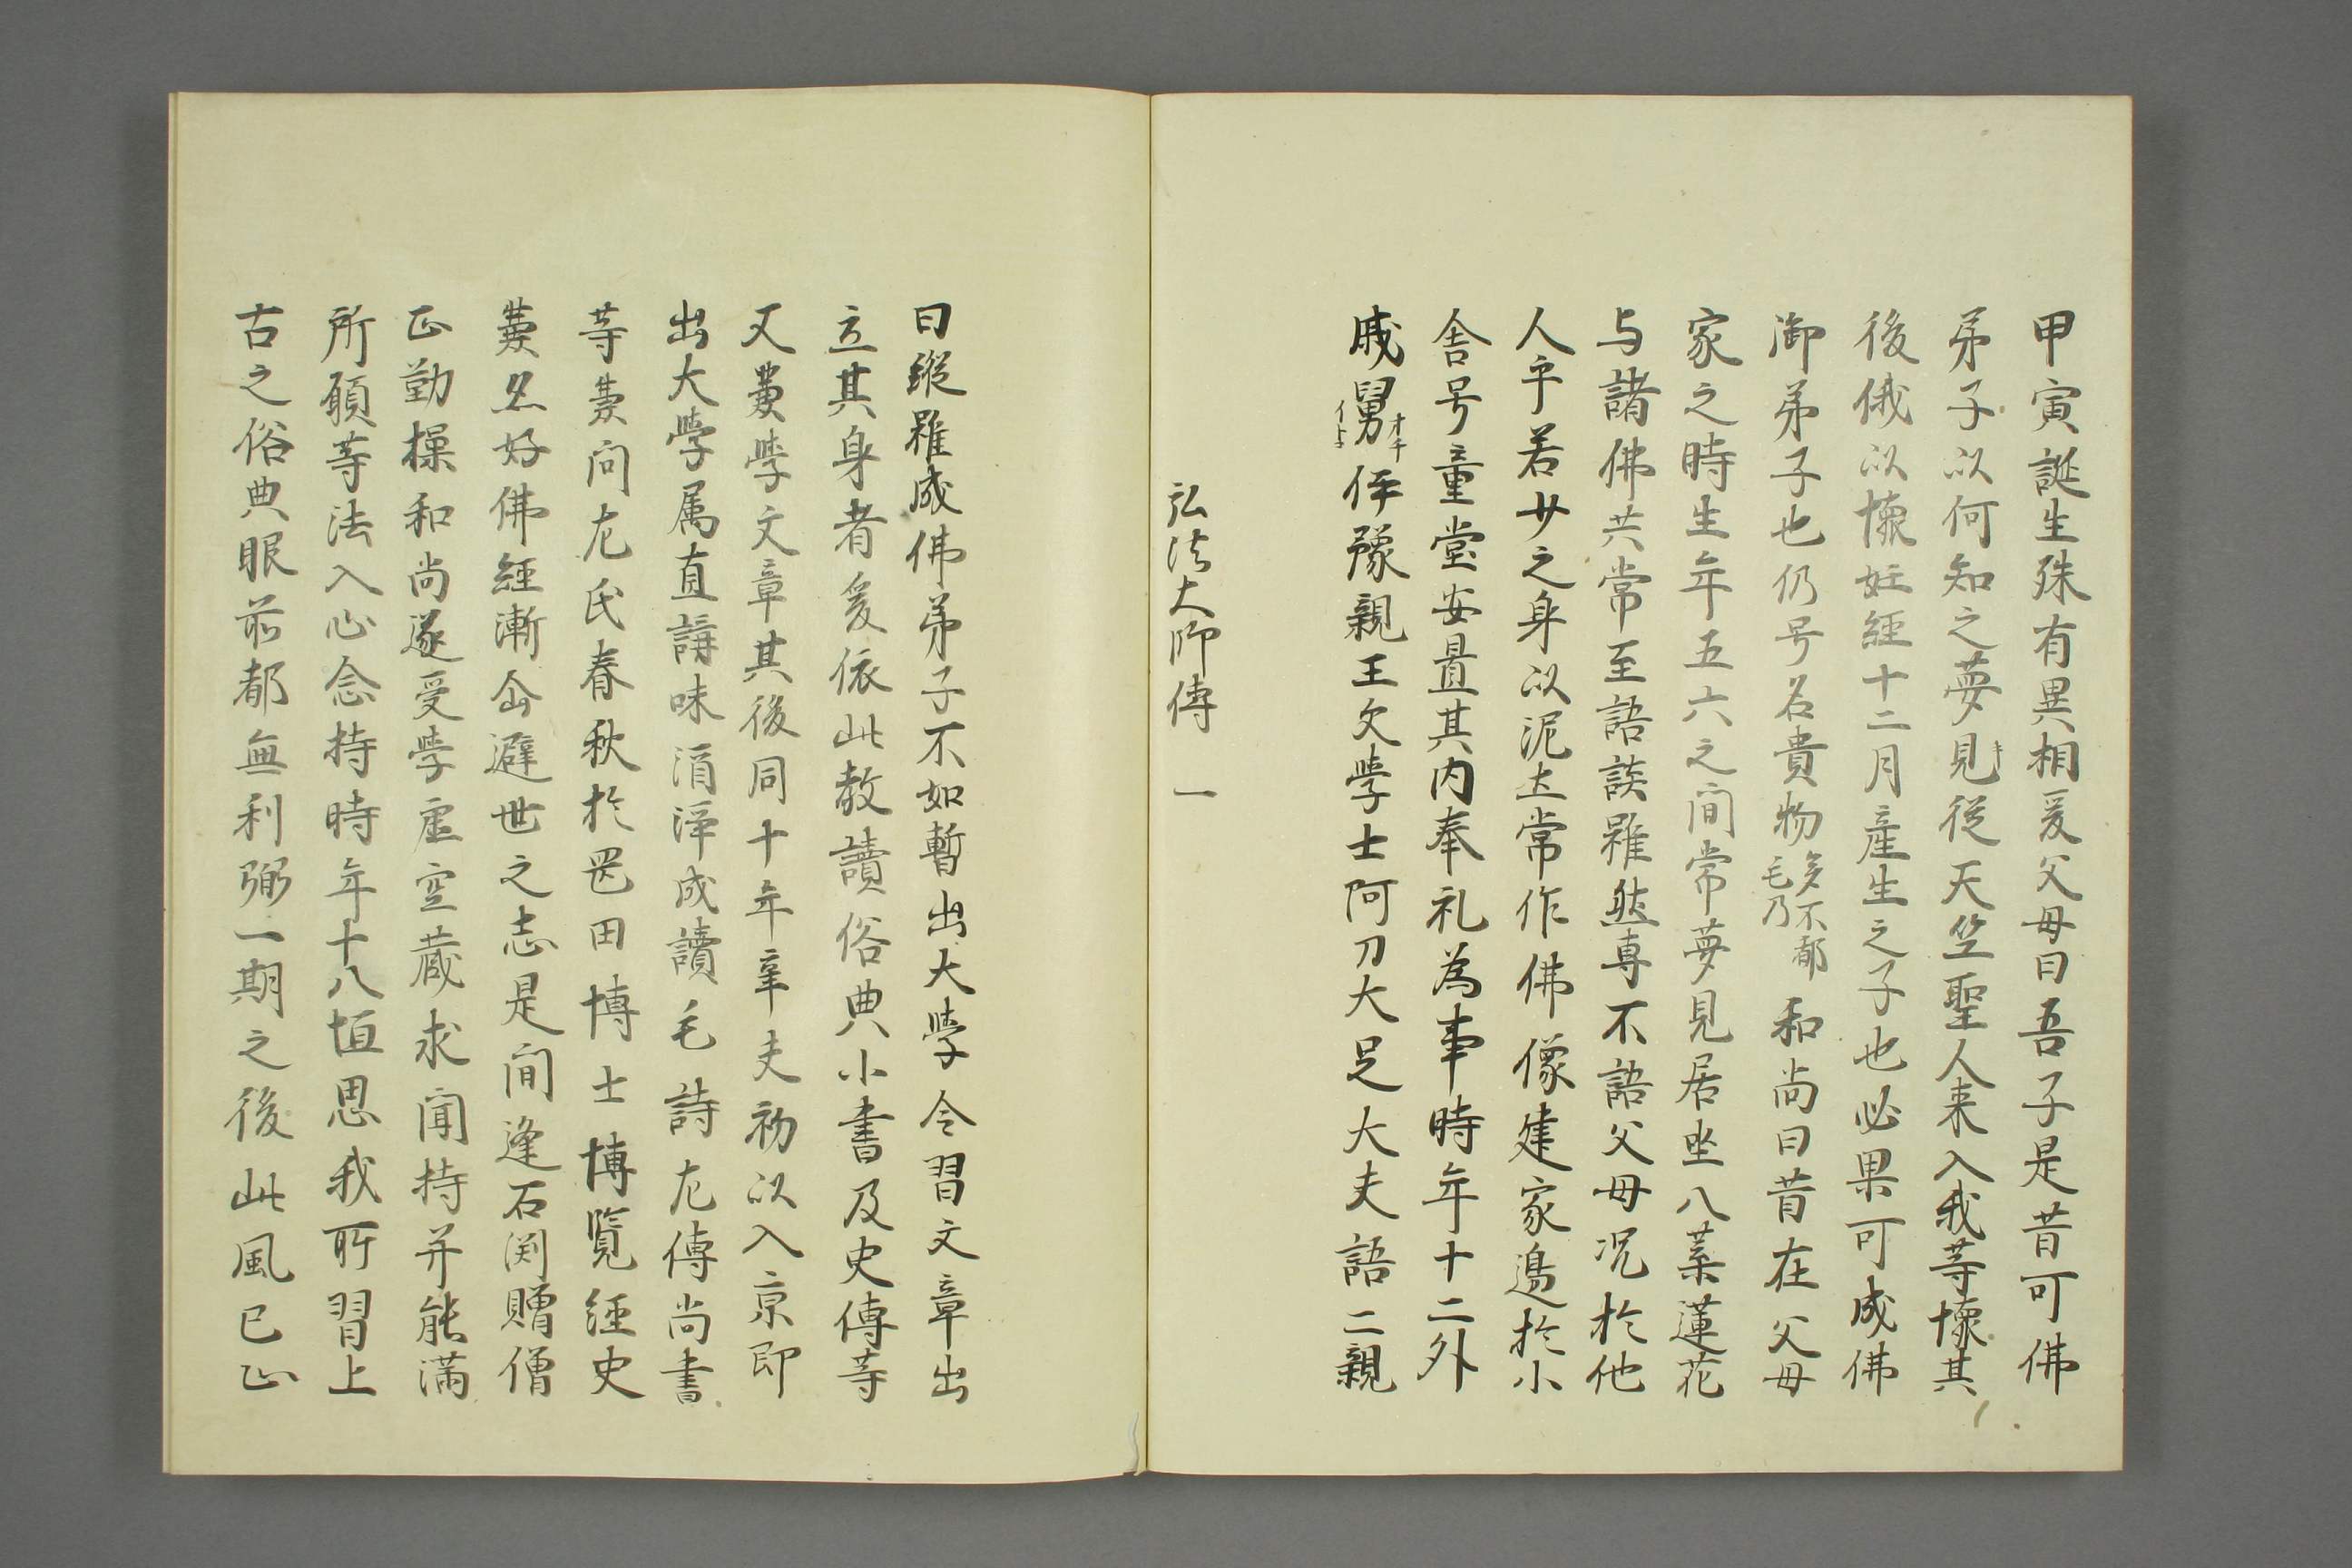 甲寅誕生殊有異相爰父母曰吾子是昔可佛
弟子以何知之夢見従天竺聖人来入我等懐其
キ
後俄以懐妊経十二月産生之子也必果可成佛
御弟子也仍号名貴物多不都毛乃和尚曰昔在父母
家之時生年五六之間常夢見居坐八葉蓮花
与諸佛共常至語談雖然専不語父母况於他
人乎若少之身以泥土常作佛像建家邊於小
舎号童堂安置其内奉礼為事時年十二外
戚舅伊豫親王文學士阿刀大足大夫語二親
オチ
イヨ
弘法大師傳 一
曰縦雖成佛弟子不如暫出大學令習文章出
立其身者爰依此教讀俗典小書及史傳等
又兼學文章其後同十年辛夫初以入京即
出大學属直講味酒浄成讀毛詩左傳尚書
等兼问左氏春秋於罡田博士博覧経史
兼忽好佛経漸企避世之志是间逢石渕贈僧
正勤操和尚遂受學虚空蔵求聞持并能満
所願等法入心念持時年十八恒思我所習上
古之俗典眼前都無利弼一期之後此風已止